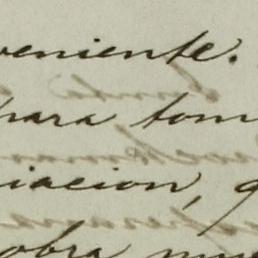 veniente.
para tom
iacion, q
obra mu